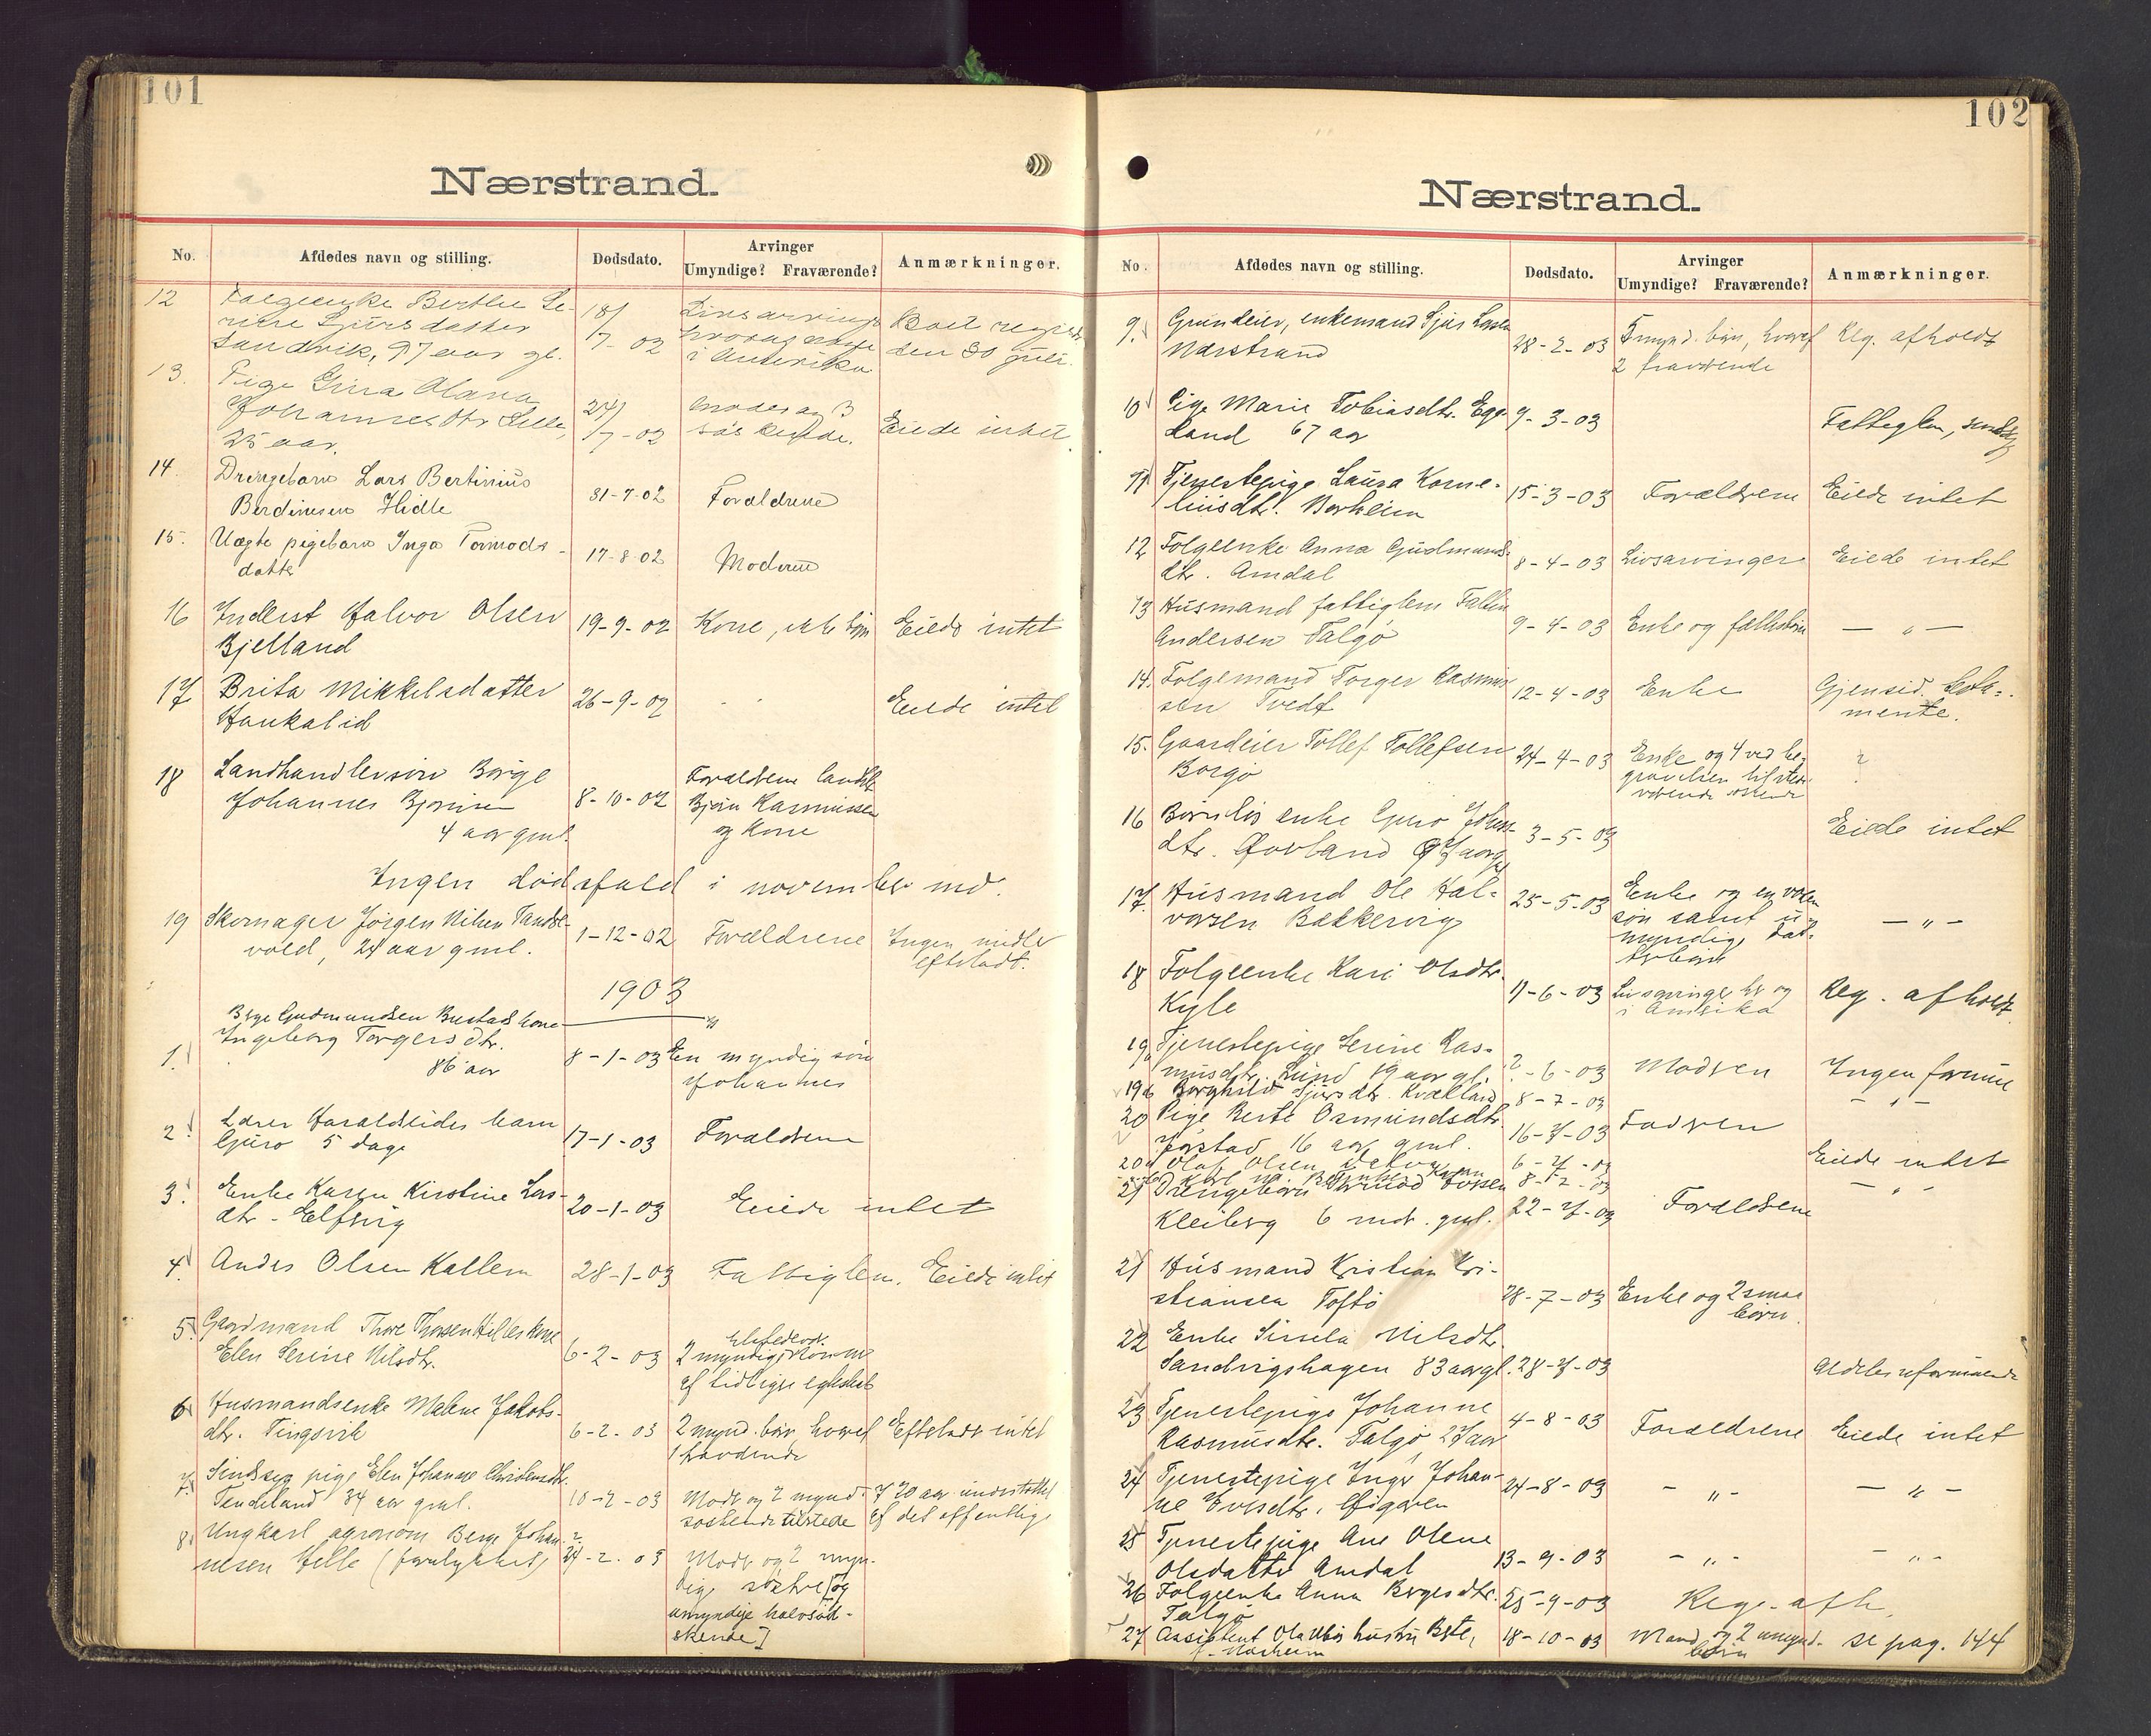 101
Nærstrand.
No. Afdødes navn og stilling. Dødsdato. Arvinger Umyndige? Fraværende? Anmærkninger.
12 Følgeenke Berthe Se-
rine Sjursdatter 18/7 02 Livsarvinger
Sandvik, 97 aar gl. i Amerika den 30 juli
13. Pige Gina Olava
Johannesdtr Lille, 24/7-02 Moder og 3
25 aar. søskende. Eiede intet
14. Drengebarn Lars Bertinius
Berdinesen Hidle 31-7-02 Forældrene
15. Uægte pigebarn Inga Tormods-
datter 17-8-02 Moderen
16 Inderst Halvor Olsen 19-9-02 Kone, ikke børn Eiede intet
Bjelland
17 Brita Mikkelsdatter 26-9-02 Eiede intet
Haukalid
18 Landhandlersøn Børge Forældrene landh.
Johannes Bjørnsen 8-10-02 Bjørn Rasmussen
4 aar gml. og kone
Ingen dødsfald i november md.
19 Skomager Jørgen Nilsen Tandse-
vold, 24 aar gml. 1-12-02 Forældrene Ingen midler
efterladt.
1903
Børge Gudmundsen Bustads kone
1. Ingeborg Torgersdtr. 8-1-03 En myndig søn
86 aar Johannes
2. Lærer Haraldseides barn
Guro 5 dage 17-1-03 Forældrene
3. Enke Karen Kirstine Lars-
dtr. Elfsvig 20-1-03 Eiede intet
4. Anders Olsen Kallem 28-1-03 Fattiglem. Eiede intet
5. Gaardmand Thore Thorsen Hilles kone
Elen Serine Nilsdtr. 6-2-03 2 myndige sønner
af tidligere egteskab
6. Husmandsenke Malene Jakobs-
dtr. Tingsvik 6-2-03 2 mynd. børn, hvoraf Efterlader intet
1 fraværende
7. Sindssyg pige Elen Johanne Christensdtr.
Tendeland 34 aar gml. 10-2-03 Moder og 2 mynd. I 20 aar understøttet
søskende tilstede af det offentlige
8. Ungkarl agronom Børge Johan-
nesen Hille (forulykket) 24-2-03 Moder og 2 myn-
dige søstre [og
umyndige halvsød-
skende]
102
Nærstrand.
No. Afdødes navn og stilling. Dødsdato. Arvinger Umyndige? Fraværende? Anmærkninger.
9. Grundeier, enkemand Sjur Larsen
Nærstrand 28-2-03 5 mynd. børn, hvoraf Reg. afholdt
2 fraværende
10 Pige Marie Tobiasdtr. Ege-
land 67 aar 9-3-03 Fattiglem, sindssyg
11 Tjenestepige Laura Korne-
liusdtr. Borheim 15-3-03 Forældrene Eiede intet
12 Følgeenke Anna Gudmunds-
dtr. Amdal 8-4-03 Livsarvinger Eiede intet
13 Husmand fattiglem Falkin
Andersen Talgø 9-4-03 Enke og fællesbørn — " —
14. Følgemand Torger Rasmus-
sen Tvedt 12-4-03 Enke Gjensid. testa-
mente.
15. Gaardeier Tollef Tollefsen
Borgø 24-4-03 Enke og 4 ved be-
gravelsen tilstede-
værende søskende ?
16 Barnløs enke Guro Johns-
dtr. Øvland 97 aar gl 3-5-03 Eiede intet
17. Husmand Ole Hal-
vorsen Bakkevig 25-5-03 Enke og en voksen
søn samt u-
myndige dat-
terbørn — " —
18 Følgeenke Kari Olsdtr.
Kyle 9-6-03 Livsarvinger her og
i Amerika Reg. afholdt.
19a Tjenestepige Serine Ras-
musdtr. Lund 19 aar gl. ?-6-03 Modren Ingen formue
19b Borghild Sjursdtr. Kvalland 8-7-03 — " —
20 Pige Berte Osmundsdtr.
Jørstad 16 aar gml. 16-7-03 Fadren
20a Olaf Olsen 6-7-03 Eiede intet
8-12-03 — " —
21 Drengebarn Tormod Torsen
Kleiberg 6 mdr. gml. 22-7-03 Forældrene
21 Husmand Kristian Kri-
stiansen Toftø 28-7-03 Enke og 2 smaa
børn.
22 Enke Sissela Nilsdtr.
Sandvigshagen 83 aar gl. 28-7-03 Aldeles uformuende
23 Tjenestepige Johanne
Rasmusdtr. Talgø, 27 aar 4-8-03 Forældrene Eiede intet
24 Tjenestepige Inger Johan-
ne Eversdtr. Øigaren 24-8-03 — " — — " —
25 Tjenestepige Ane Olene
Olsdatter Amdal 13-9-03 — " — — " —
26 Følgeenke Anna Børgesdtr.
Talgø 25-9-03 Reg. afh.
27 Assistent Ola Vbøs hustru Berte,
f. Norheim 18-10-03 Mand og 2 umynd. børn se pag. 144